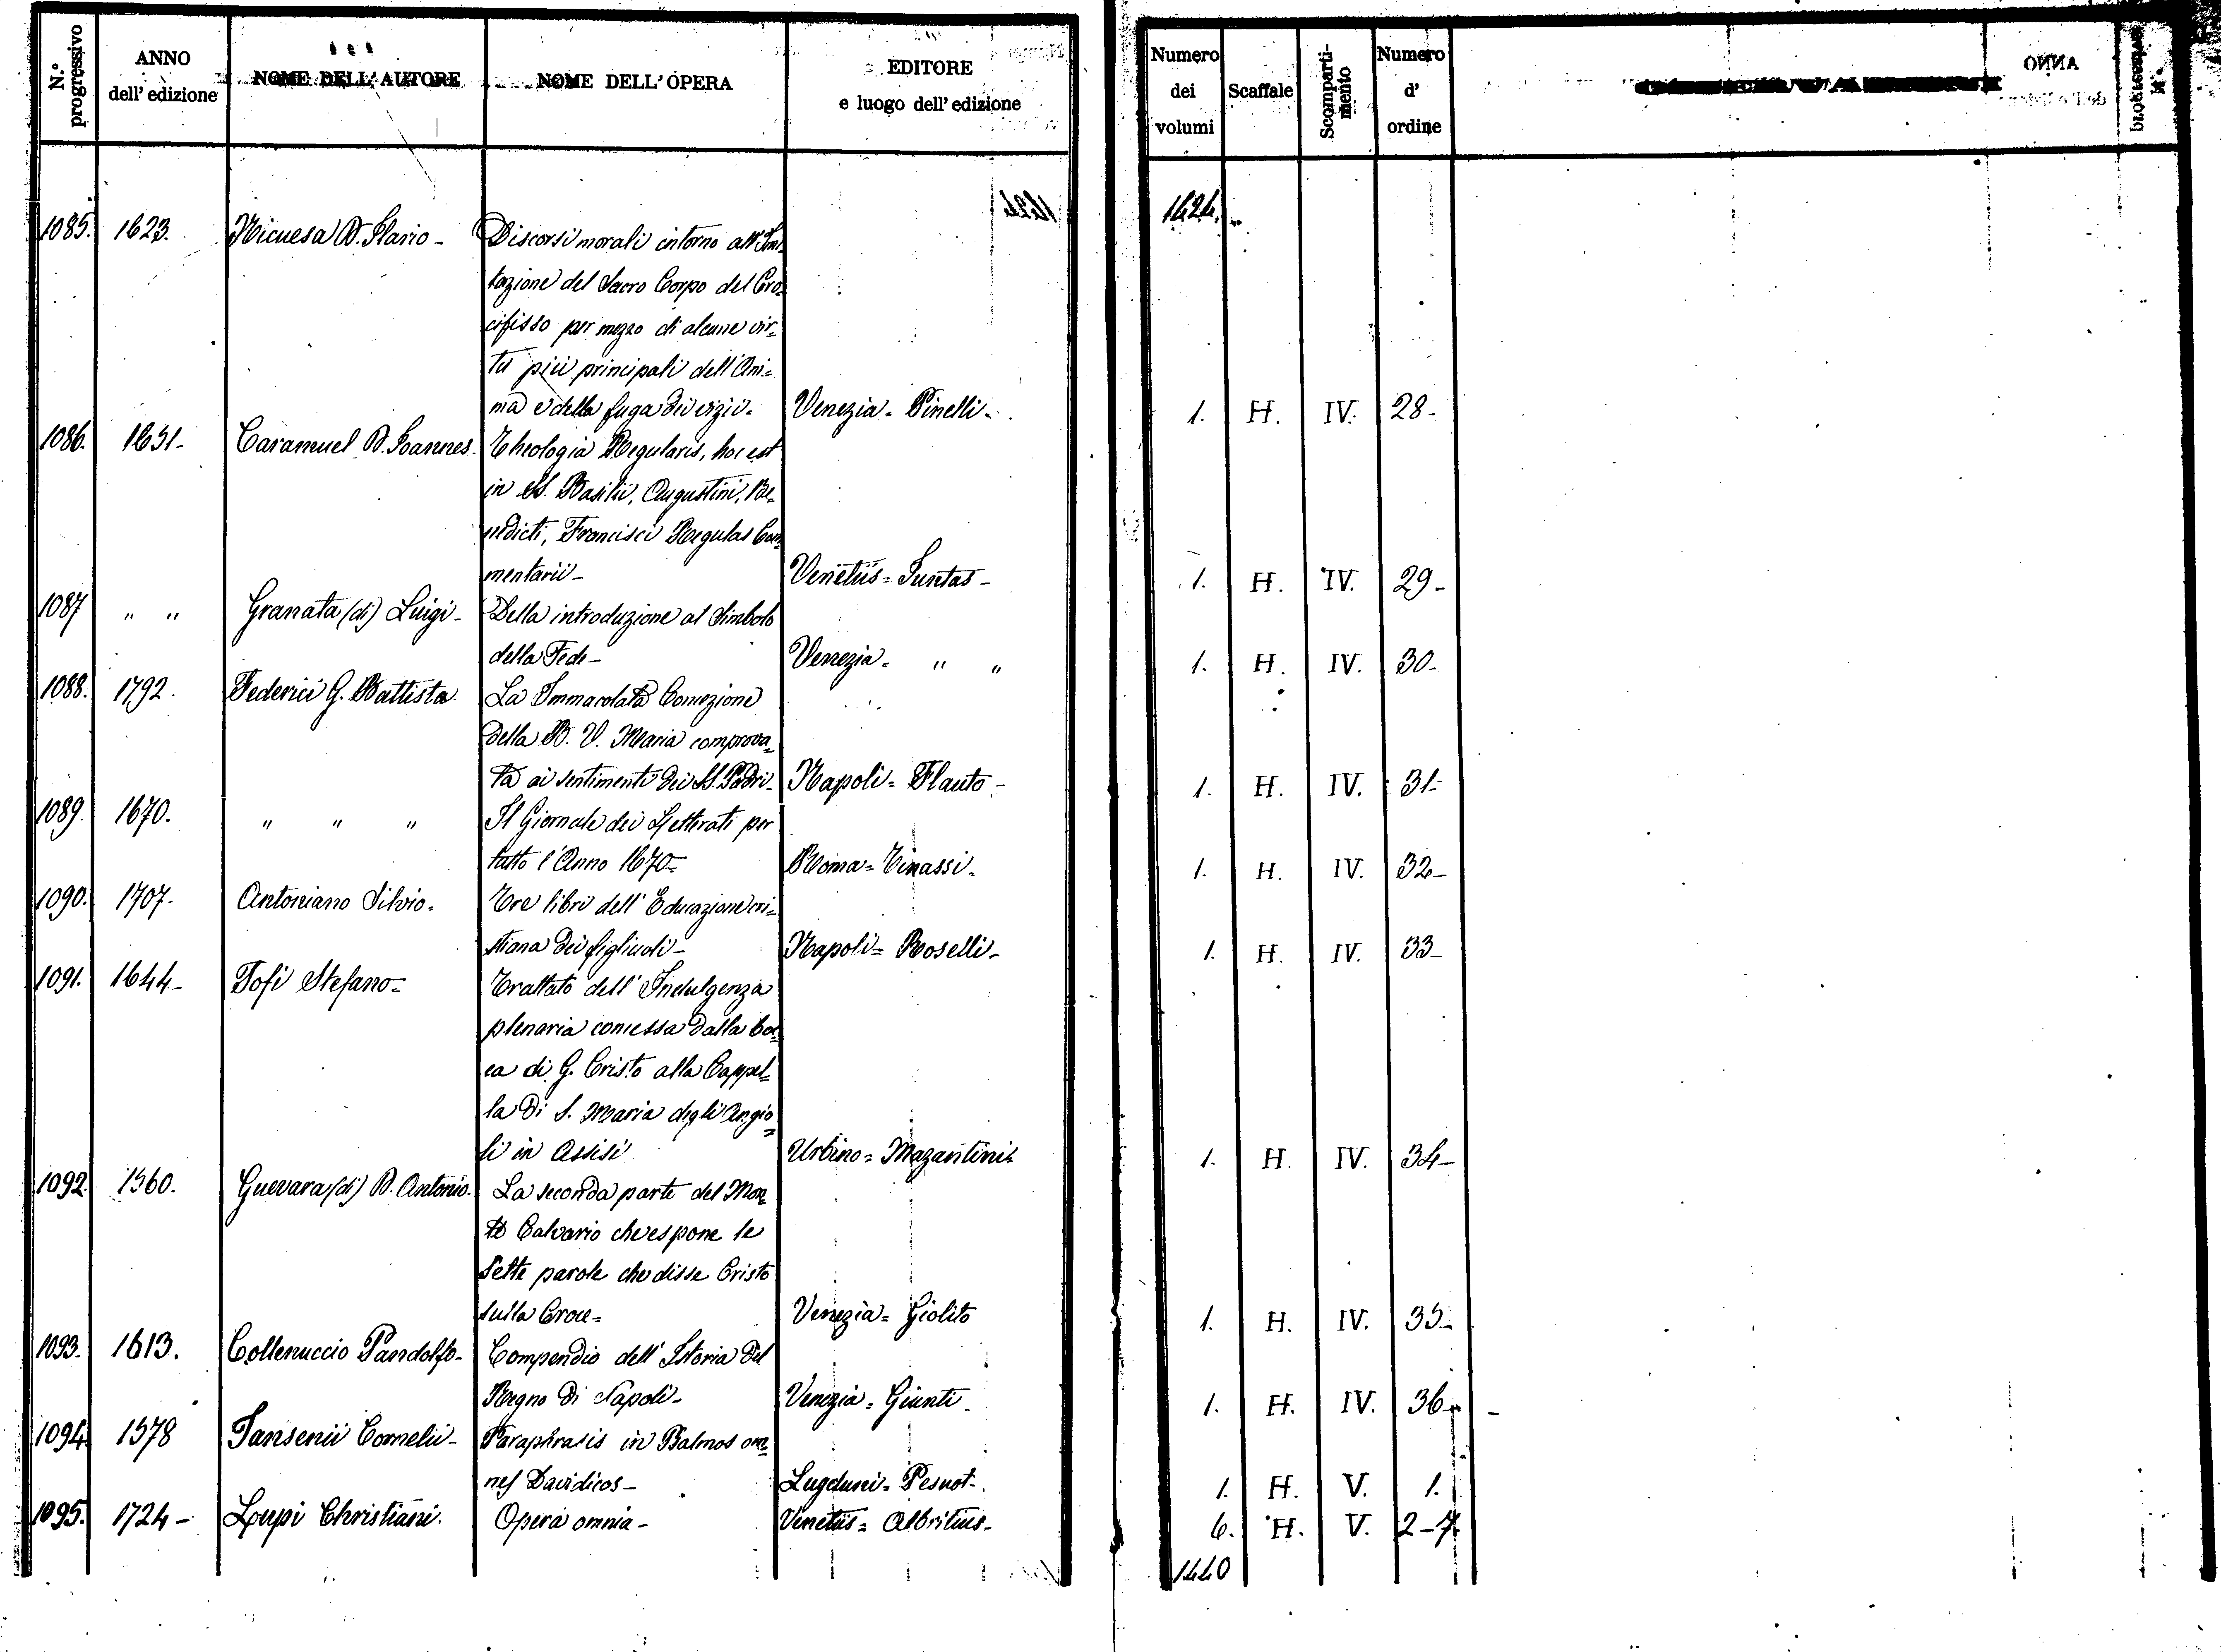 N.° progressivo
ANNO dell' edizione
NOME DELL' AUTORE
NOME DELL' OPERA
EDITORE e luogo dell' edizione
Numero dei volumi
Scaffale
Scomparti-mento
Numero d' ordine
1424.
1085. 1623. Nicuesa D. Ilario - Discorsi morali intorno all' Imi-
tazione del Sacro Corpo del Cro-
cifisso per mezzo di alcune vir=
tù più principali dell' Ani=
ma e della fuga dei vizii - Venezia = Pinelli - 1. H. IV. 28-
1086. 1651- Caramuel D. Joannes. Theologia Regularis, hoc est
in SS. Basilii, Augustini, Be-
nedicti, Francisci Regulas Com=
mentarii - Venetiis = Juntas - 1. H. IV. 29-
1087 " " Granata (di) Luigi - Della introduzione al Simbolo
della Fede - Venezia = " " 1. H. IV. 30-
1088. 1792. Federici G. Battista. La Immacolata Concezione
della B. V. Maria comprova=
ta ai sentimenti dei SS. Padri - Napoli = Flauto - 1. H. IV. 31-
1089. 1670. " " " Il Giornale dei Letterati per
tutto l'Anno 1670= Roma = Tinassi - 1. H. IV. 32-
1090. 1707. Antoniano Silvio - Tre libri dell' Educazione cri=
stiana dei figliuoli - Napoli = Roselli - 1. H. IV. 33-
1091. 1644- Tofi Stefano = Trattato dell' Indulgenza
plenaria concessa dalla boc=
ca di G. Cristo alla Cappel-
la di S. Maria degli Angio=
li in Assisi Urbino = Mazantini - 1. H. IV. 34-
1092. 1560. Guevara (di) D. Antonio. La seconda parte del Mon=
te Calvario che espone le
Sette parole che disse Cristo
sulla Croce = Venezia = Giolito 1. H. IV. 35-
1093. 1613. Collenuccio Pandolfo - Compendio dell' Istoria del
Regno di Napoli - Venezia = Giunti - 1. H. IV. 36-
1094 1578 Jansenii Cornelii - Paraphrasis in Psalmos om=
nes Davidicos - Lugduni = Pesnot - 1. H. V. 1.
1095. 1724- Lupi Christiani. Opera omnia - Venetiis = Albritius - 6. H. V. 2-7
1440